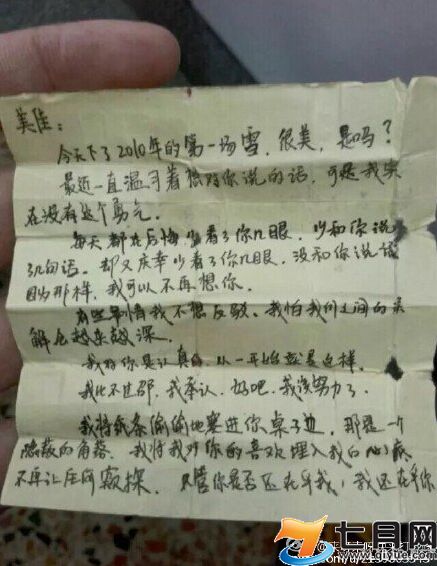 美佳：
今天下了2010年的第一场雪，很美，是吗？
最近一直温习着想对你说的话，可是我实
在没有这个勇气。
每天都在后悔少看了你几眼，少和你说
了几句话。却又庆幸少看了你几眼，没和你说话
因为那样，我可以不再想你。
有些事情我不想反驳。我怕我们之间的误
解会越来越深。
我对你是认真的，从一开始就是这样。
我比不过邵，我承认。好吧，我没努力了。
我将纸条偷偷地塞进你桌子边，那是一个
隐蔽的角落。我将我对你的喜欢埋入我的心底
不再让任何窥探。只管你是否还在乎我，我还在乎你
七月网
www.qiyue.com